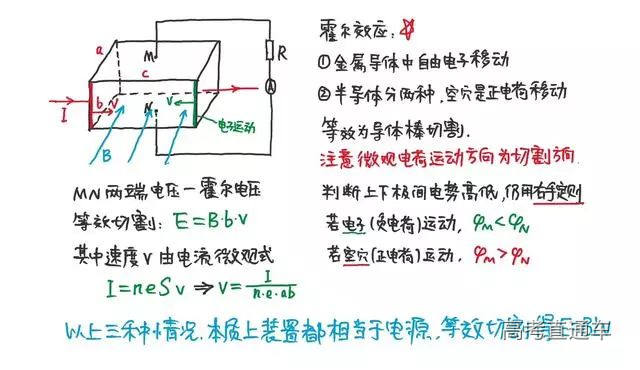 霍尔效应:
①金属导体中自由电子移动
②半导体分两种,空穴是正电荷移动
等效为导体棒切割.
注意微观电荷运动方向为切割方向.
判断上下极间电势高低,仍用右手定则
若电子(负电荷)运动, φM<φN
若空穴(正电荷)运动, φM>φN
a
M
c
R
A
I
b
v
N
v
B
电子运动
MN两端电压-霍尔电压
等效切割: E=B·b·v
其中速度v由电流微观式
I=neSv ⇒ v=I/n·e·ab
以上三种情况.本质上装置都相当于电源.等效切割
高考直通车